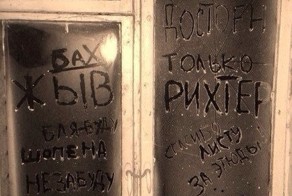 БАХ
ЖЫВ
БЛЯ-БУДУ
ШОПЕНА
НЕЗАБУДУ
ДОСТОЕН
ТОЛЬКО
РИХТЕР
ЛИСТУ
ЗА ЭТЮДЫ